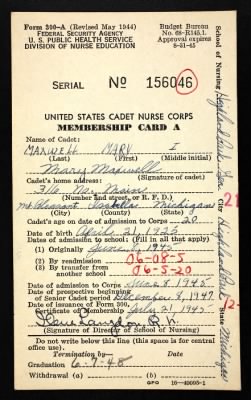 Form 300-A (Revised May 1944)
FEDERAL SECURITY AGENCY
U. S. PUBLIC HEALTH SERVICE
DIVISION OF NURSE EDUCATION
Budget Bureau
No. 68-R145.1.
Approval expires
8-31-45
SERIAL No 156046
UNITED STATES CADET NURSE CORPS
MEMBERSHIP CARD A
Name of Cadet:
MAXWELL MARY I
(Last) (First) (Middle initial)
Mary Maxwell
Cadet's home address: (Signature of cadet)
316 No. Main
(Number and street, or R. F. D.)
Mt Pleasant Isabella Michigan
(City) (County) (State)
Cadet's age on date of admission to Corps 20
Date of birth April 21, 1925
Dates of admission to school: (Fill in all that apply)
(1) Originally 1945
(2) By readmission 06-08-5
(3) By transfer from another school 06-5-20
Date of admission to Corps June 8 1945
Date of prospective beginning
of Senior Cadet period December 8, 1947
Date of issuance of Form 300,
Certificate of Membership July 21 1945
R.N.
(Signature of Director of School of Nursing)
Do not write below this line (this space is for central
office use).
Termination by Date
Graduation 6-7-48
Withdrawal (a) (b)
GPO 16-40605-1
School of Nursing
Highland Park
State Michigan
21